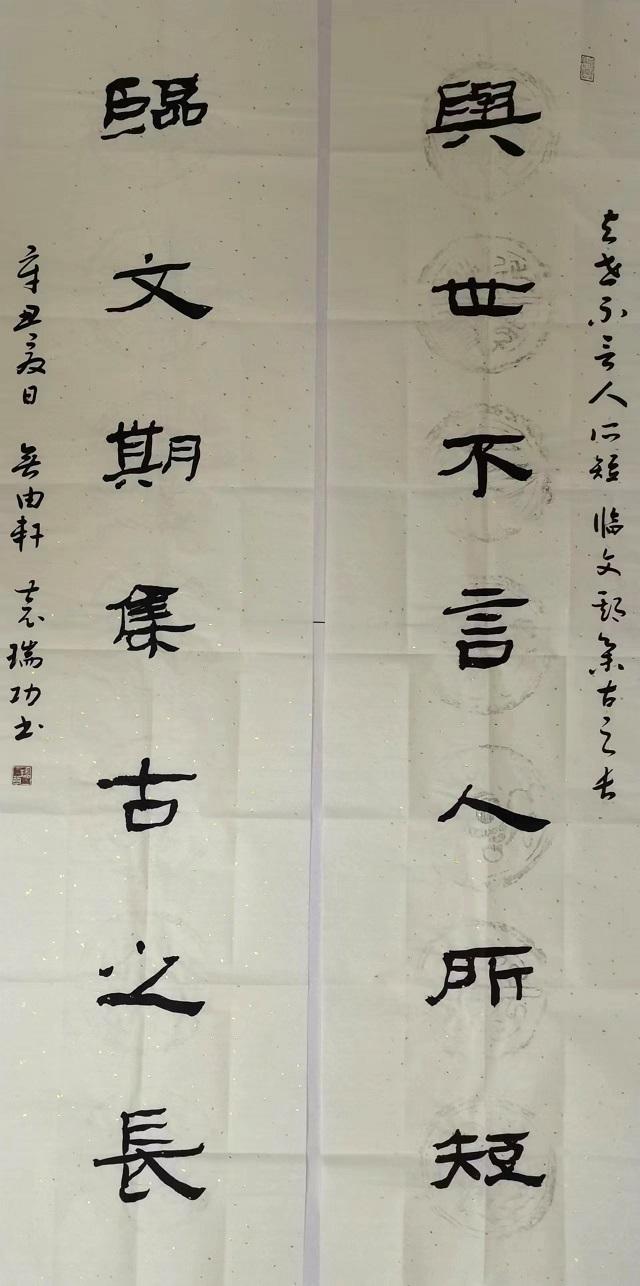 与世不言人所短 临文期集古之长
與世不言人所短
臨文期集古之長
辛丑夏日 無由軒 袁瑞功书